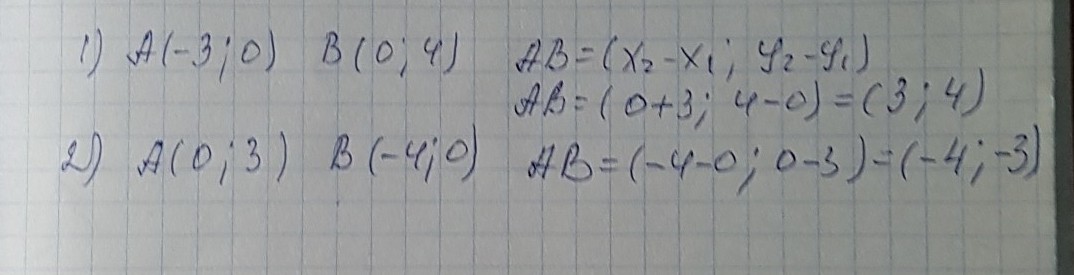 1) A(-3;0) B(0;4) AB=(x₂-x₁; y₂-y₁)
AB=(0+3; 4-0)=(3;4)
2) A(0;3) B(-4;0) AB=(-4-0; 0-3)=(-4;-3)